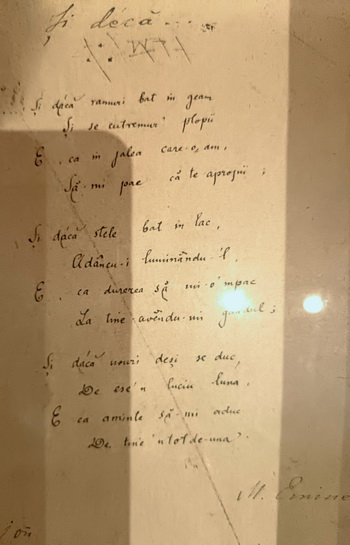 Și décă...
Și dacă ramuri bat in geam
Și se cutremur' plopii
E ca in jalea care-o, am,
Să-mi pae că te apropii;
Și dacă stele bat in lac,
Adâncu-i luminându-'l,
E ca durerea să mi-o 'mpac
La tine avêndu-mi gândul;
Și dacă nouri deși se duc,
De ese'n luciu luna,
E ca aminte să-mi aduc
De tine 'n tot de-una.
M. Emines